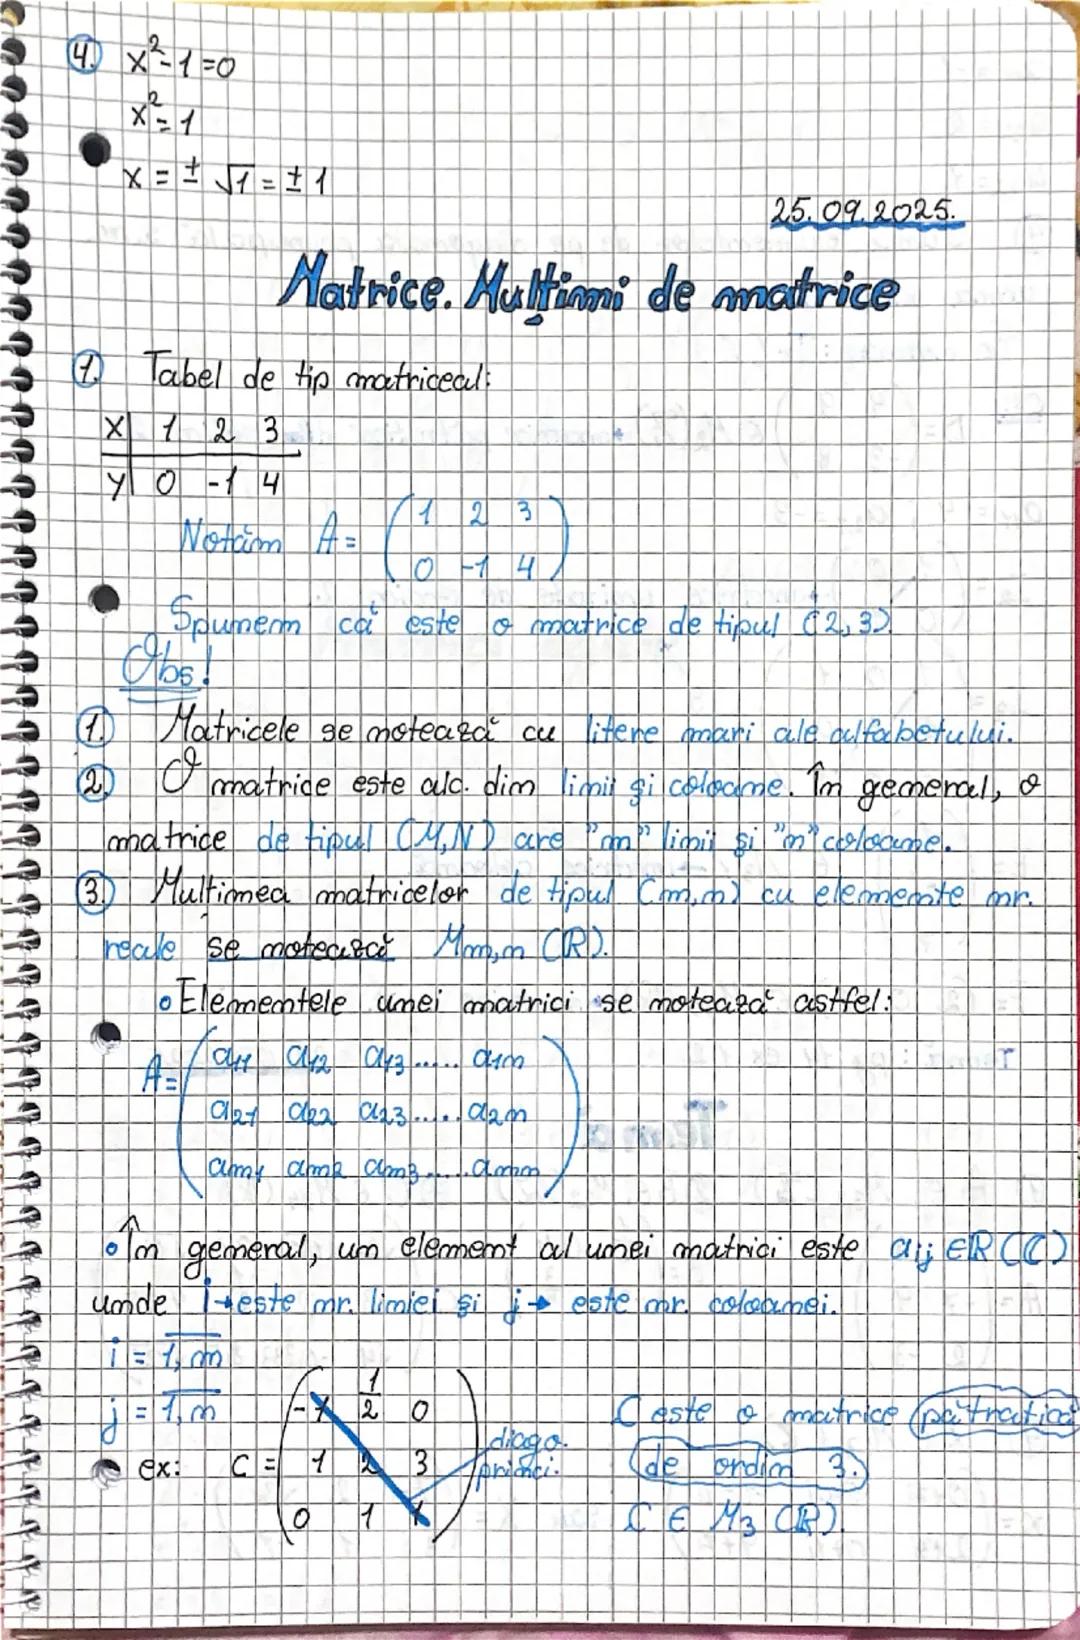 4. x²-1=0
x²=1
x = ± √1 = ± 1
25.09.2025.
Matrice. Mulțimi de matrice
1. Tabel de tip matriceal:
x | 1 2 3
y | 0 -1 4
Notăm A = ( 1 2 3
0 -1 4 )
Spunem că este o matrice de tipul (2,3)
Obs!
1. Matricele se notează cu litere mari ale alfabetului.
2. O matrice este alc. din linii și coloane. În general, o
matrice de tipul (M,N) are "m" linii și "n" coloane.
3. Mulțimea matricelor de tipul (m,n) cu elemente nr.
reale se notează Mm,n (R).
• Elementele unei matrici se notează astfel:
A = ( a11 a12 a13 ..... a1n
a21 a22 a23 ..... a2n
am1 am2 am3 ..... amn )
• În general, un element al unei matrici este aij ∈ R (C)
unde i → este nr. liniei și j → este nr. coloanei.
i = 1,m
j = 1,n
ex: C = ( -1 1/2 0
1 2 3
0 1 1 )
diago.
princi.
C este o matrice pătratică
de ordin 3.
C ∈ M3 (R).